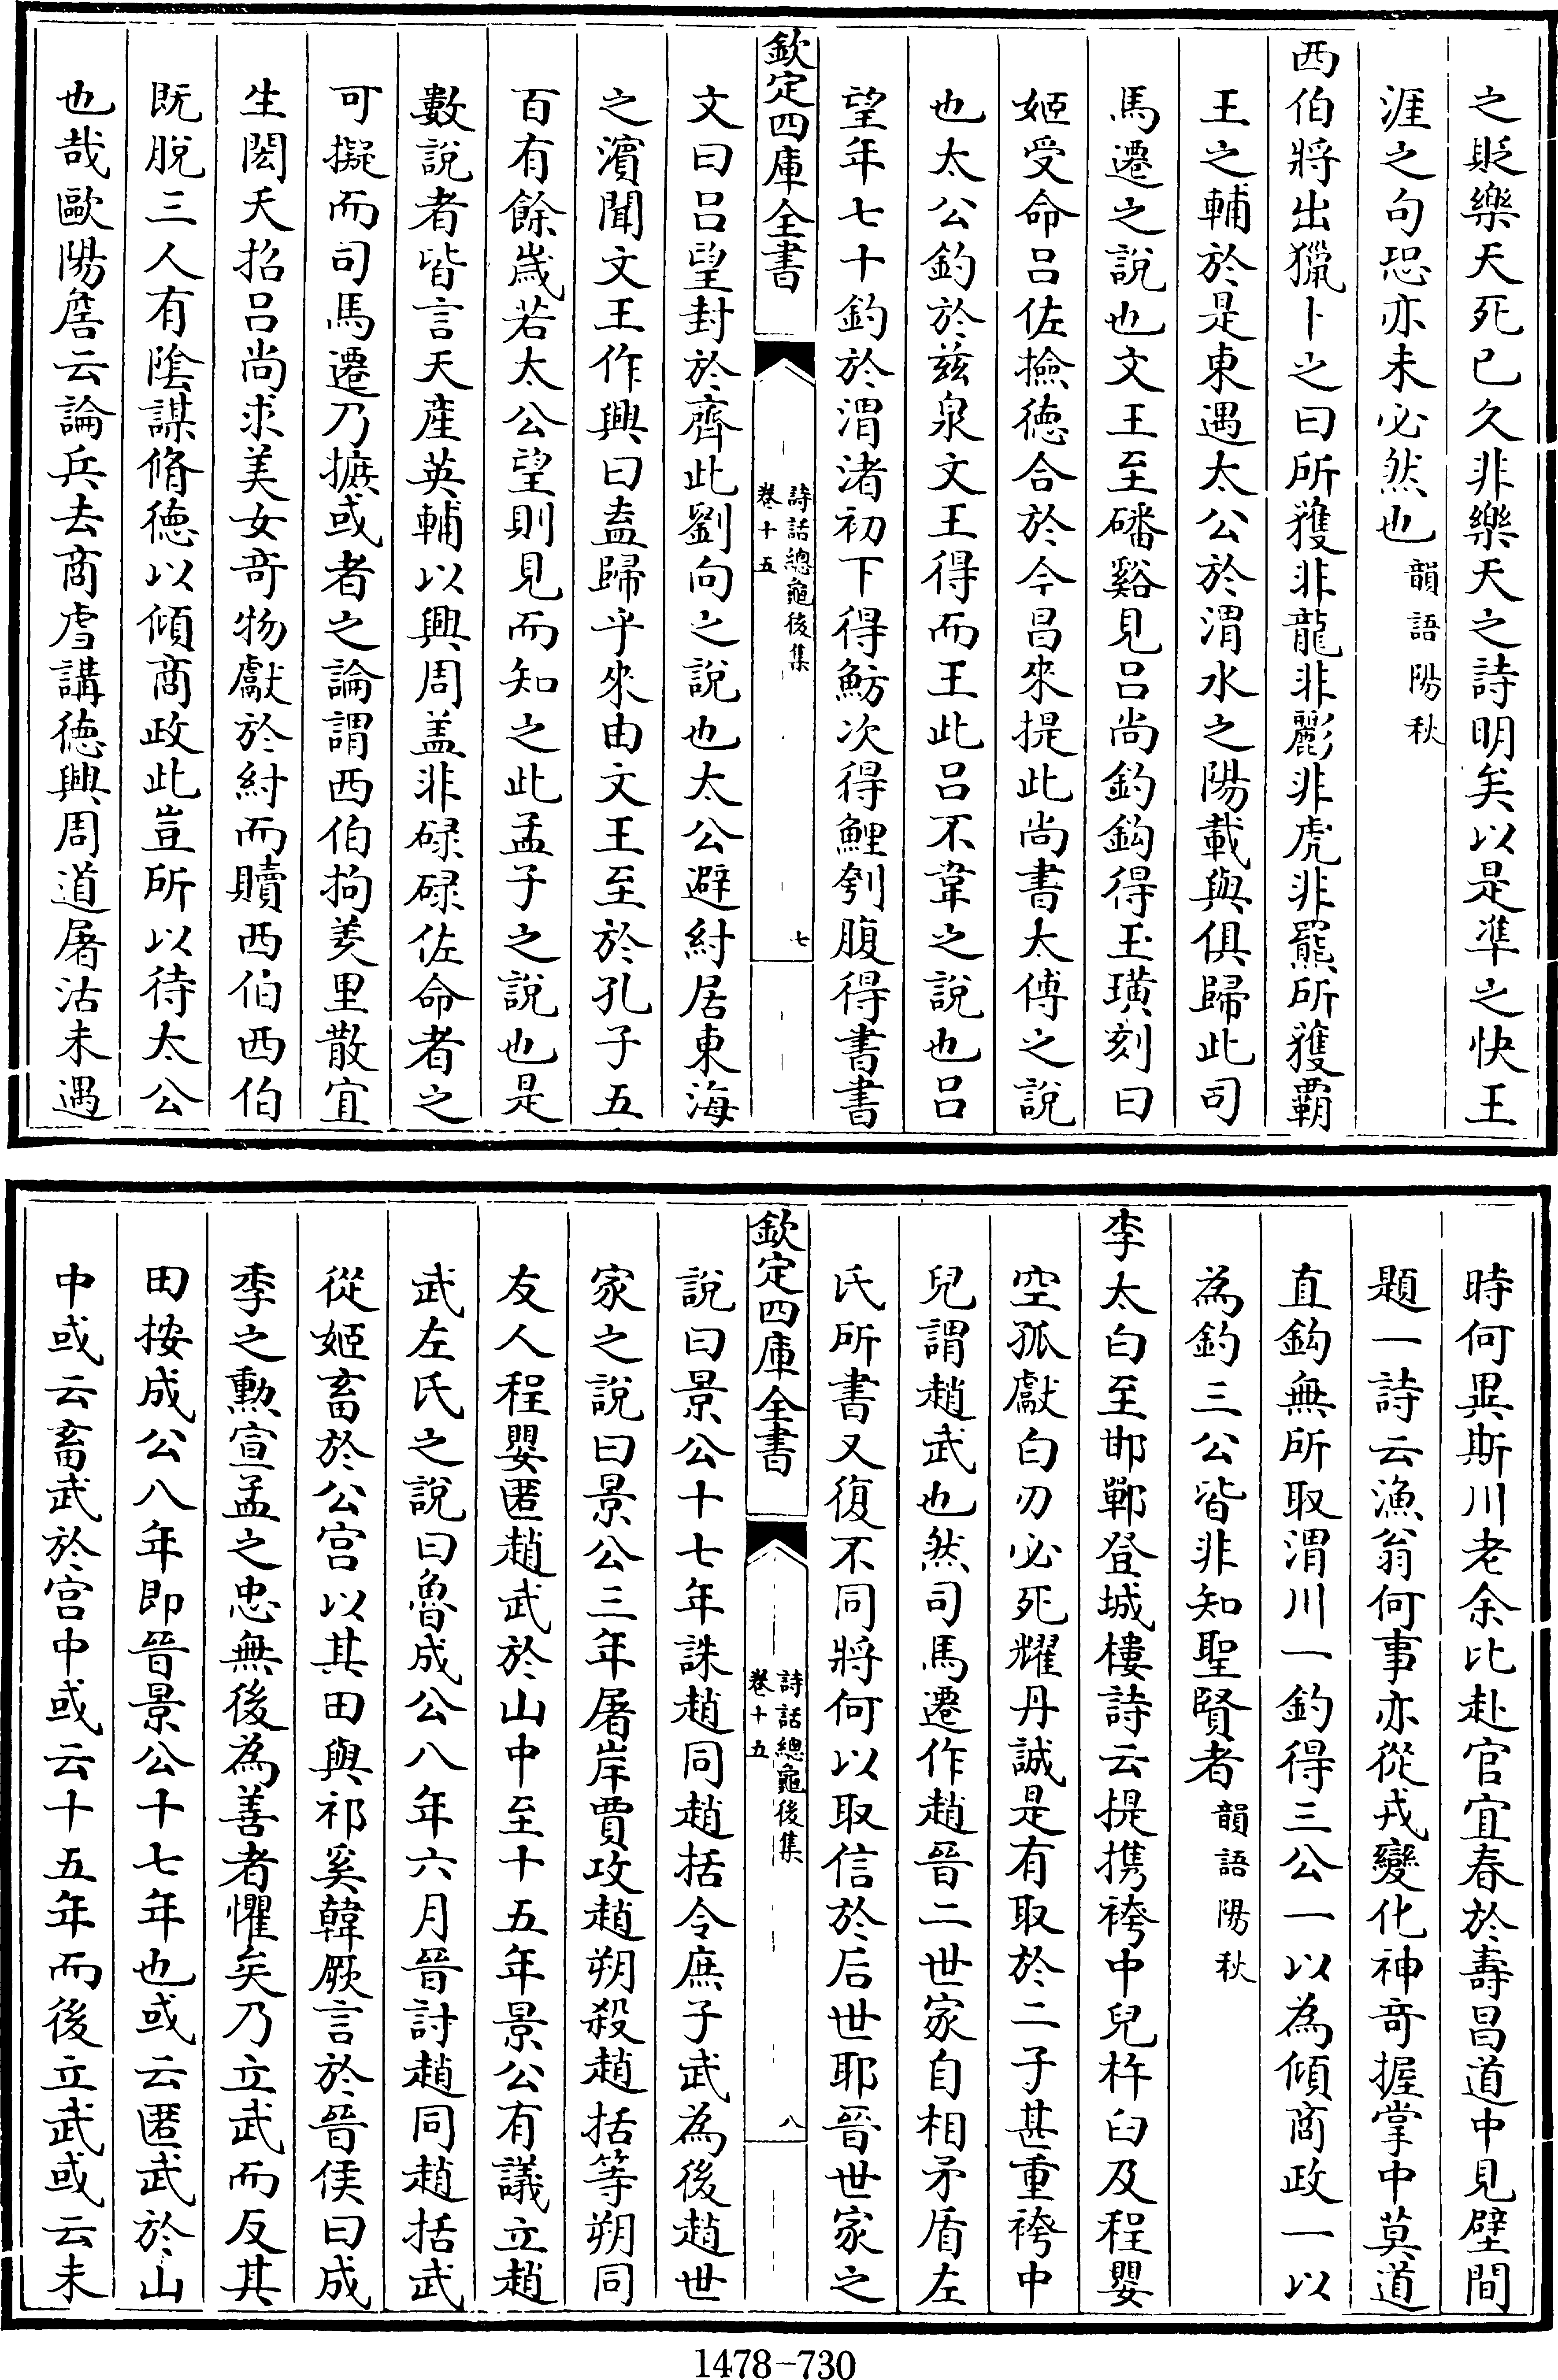 之貶樂天死已久非樂天之詩明矣以是凖之快王
涯之句恐亦未必然也韻語陽秋
西伯將出獵卜之曰所獲非龍非彲非虎非羆所獲霸
王之輔於是東遇太公於渭水之陽載與俱歸此司
馬遷之說也文王至磻谿見呂尚釣釣得玉璜刻曰
姬受命呂佐撿徳合於今昌來提此尚書太傅之說
也太公釣於兹泉文王得而王此吕不韋之說也吕
望年七十釣於渭渚初下得魴次得鯉刳腹得書書
欽定四庫全書
詩話總龜後集
卷十五
七
文曰吕望封於齊此劉向之說也太公避紂居東海
之濵聞文王作興曰盍歸乎來由文王至於孔子五
百有餘嵗若太公望則見而知之此孟子之說也是
數說者皆言天産英輔以興周盖非碌碌佐命者之
可擬而司馬遷乃摭或者之論謂西伯拘羑里散宜
生閎夭招吕尚求美女竒物獻於紂而贖西伯西伯
既脫三人有隂謀脩徳以傾商政此豈所以待太公
也哉歐陽詹云論兵去商虐講徳興周道屠沽未遇
時何異斯川老余比赴官宜春於壽昌道中見壁間
題一詩云漁翁何事亦從戎變化神竒握掌中莫道
直鈎無所取渭川一釣得三公一以為傾商政一以
為釣三公皆非知聖賢者韻語陽秋
李太白至邯鄲登城樓詩云提携袴中兒杵臼及程嬰
空孤獻白刃必死耀丹誠是有取於二子甚重袴中
兒謂趙武也然司馬遷作趙晉二世家自相矛盾左
氏所書又復不同將何以取信於后世耶晉世家之
欽定四庫全書
詩話總龜後集
卷十五
八
說曰景公十七年誅趙同趙括令庶子武為後趙世
家之說曰景公三年屠岸賈攻趙朔殺趙括等朔同
友人程嬰匿趙武於山中至十五年景公有議立趙
武左氏之說曰魯成公八年六月晉討趙同趙括武
從姬畜於公宫以其田與祁奚韓厥言於晉侯曰成
季之勲宣孟之忠無後為善者懼矣乃立武而反其
田按成公八年即晉景公十七年也或云匿武於山
中或云畜武於宫中或云十五年而後立武或云未
1478-730